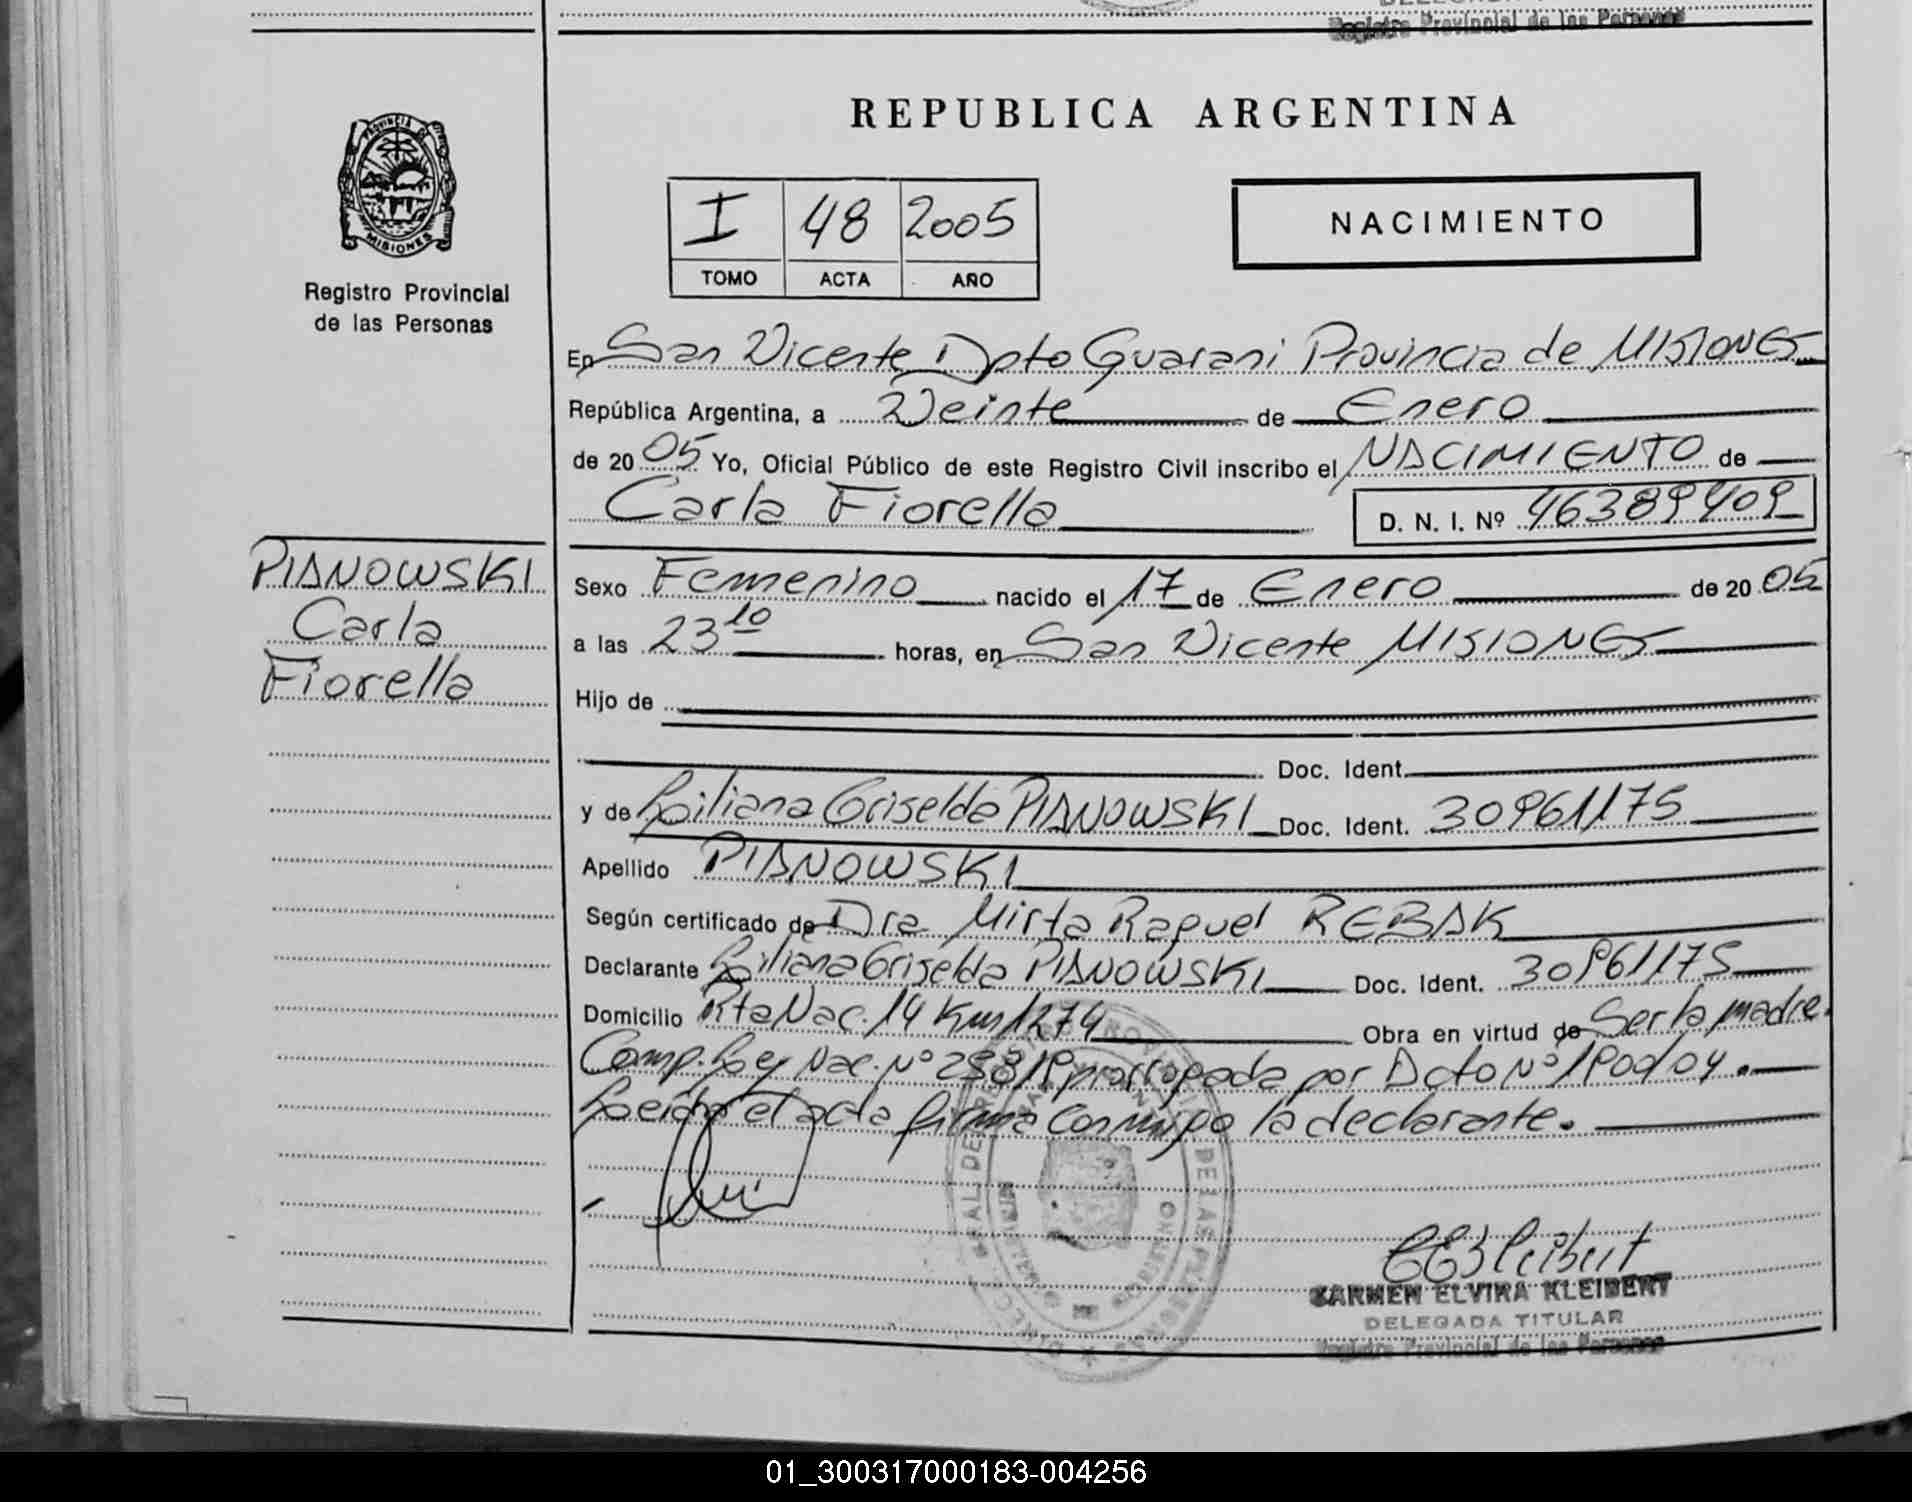 Registro Provincial de las Personas
REPUBLICA ARGENTINA
PROVINCIA DE
MISIONES
I 48 2005
TOMO ACTA AÑO
NACIMIENTO
Registro Provincial
de las Personas
En San Vicente Dpto Guarani Provincia de MISIONES
República Argentina, a Veinte de Enero
de 2005 Yo, Oficial Público de este Registro Civil inscribo el NACIMIENTO de
Carla Fiorella D. N. I. Nº 46389409
PIANOWSKI
Carla
Fiorella
Sexo Femenino nacido el 17 de Enero de 2005
a las 23 10 horas, en San Vicente MISIONES
Hijo de
Doc. Ident.
y de Liliana Griselda PIANOWSKI Doc. Ident. 30961175
Apellido PIANOWSKI
Según certificado de Dra Mirta Raquel REBAK
Declarante Liliana Griselda PIANOWSKI Doc. Ident. 30961175
Domicilio Rta Nac. 14 Km 1274 Obra en virtud de Ser la madre.
Comp. Ley Nac. Nº prorrogada por Dcto Nº
Leida el acta firma Conmigo la declarante.
CARMEN ELVIRA KLEIBERT
DELEGADA TITULAR
Registro Provincial de las Personas
01_300317000183-004256